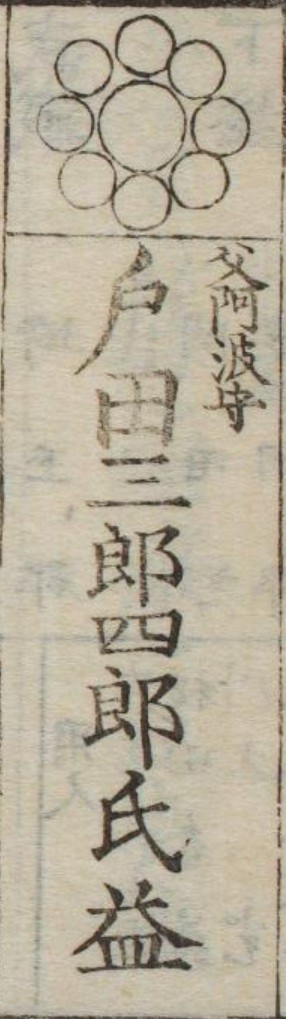 父阿波守
戸田三郎四郎氏益